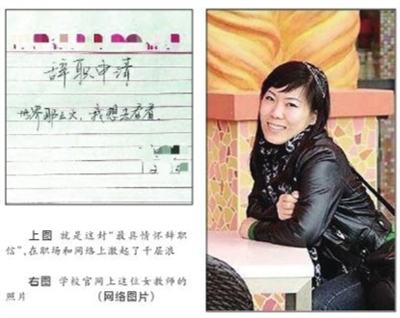 辞职申请
世界那么大，我想去看看。
上图 就是这封“最具情怀辞职
信”，在职场和网络上激起了千层浪
右图 学校官网上这位女教师的
照片 （网络图片）